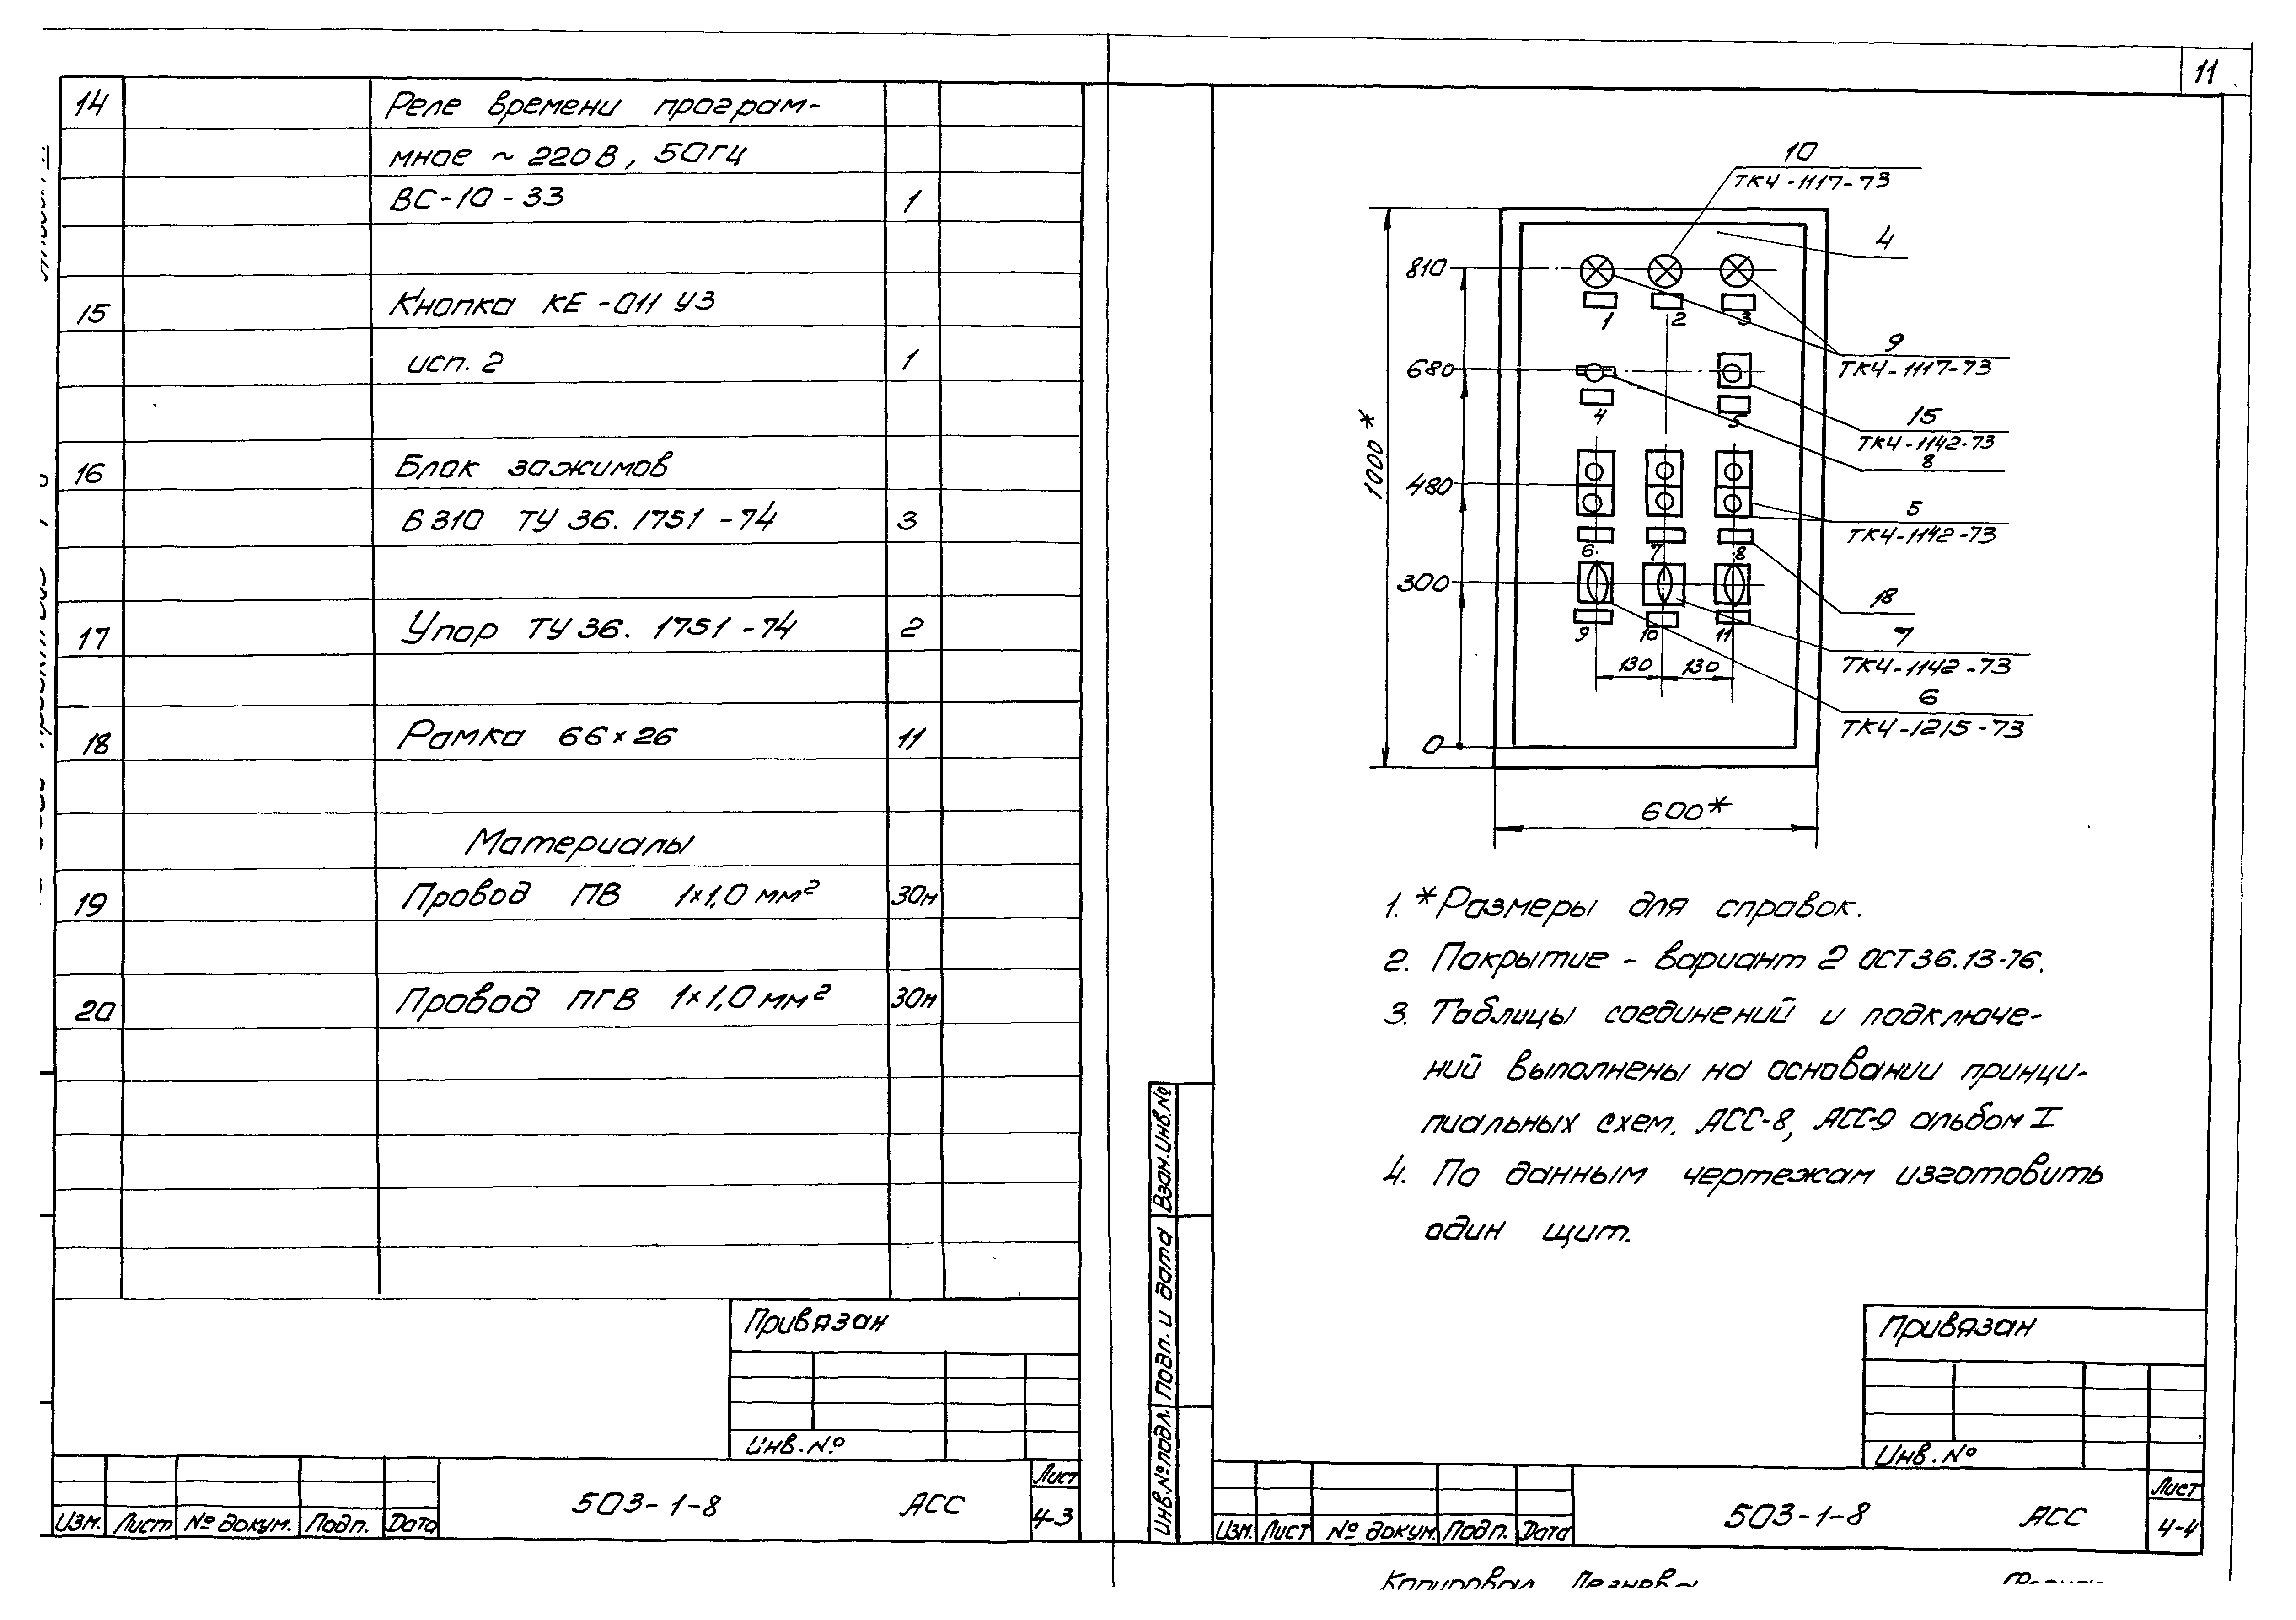 11
14 Реле времени програм-
мное ~ 220В, 50Гц
ВС-10-33 1
15 Кнопка КЕ-011 У3
исп. 2 1
16 Блок зажимов
Б310 ТУ 36. 1751-74 3
17 Упор ТУ 36. 1751-74 2
18 Рамка 66×26 11
Материалы
19 Провод ПВ 1×1,0 мм² 30м
20 Провод ПГВ 1×1,0 мм² 30м
Привязан
Инв. №
Изм. Лист № докум. Подп. Дата
503-1-8 АСС
Лист
4-3
10
ТК4-1117-73
4
810
1 2 3
9
ТК4-1117-73
680
4 5
15
ТК4-1142-73
8
1000*
480
5
ТК4-1142-73
6 7 8
300
18
9 10 11
7
ТК4-1142-73
130 130
6
ТК4-1215-73
0
600*
1. *Размеры для справок.
2. Покрытие - вариант 2 ОСТ36.13-76.
3. Таблицы соединений и подключе-
ний выполнены на основании принци-
пиальных схем. АСС-8, АСС-9 альбом I
4. По данным чертежам изготовить
один щит.
Взам. Инв. №
Подп. и дата
Инв. № подл.
Привязан
Инв. №
Изм. Лист № докум. Подп. Дата
503-1-8 АСС
Лист
4-4
Копировал